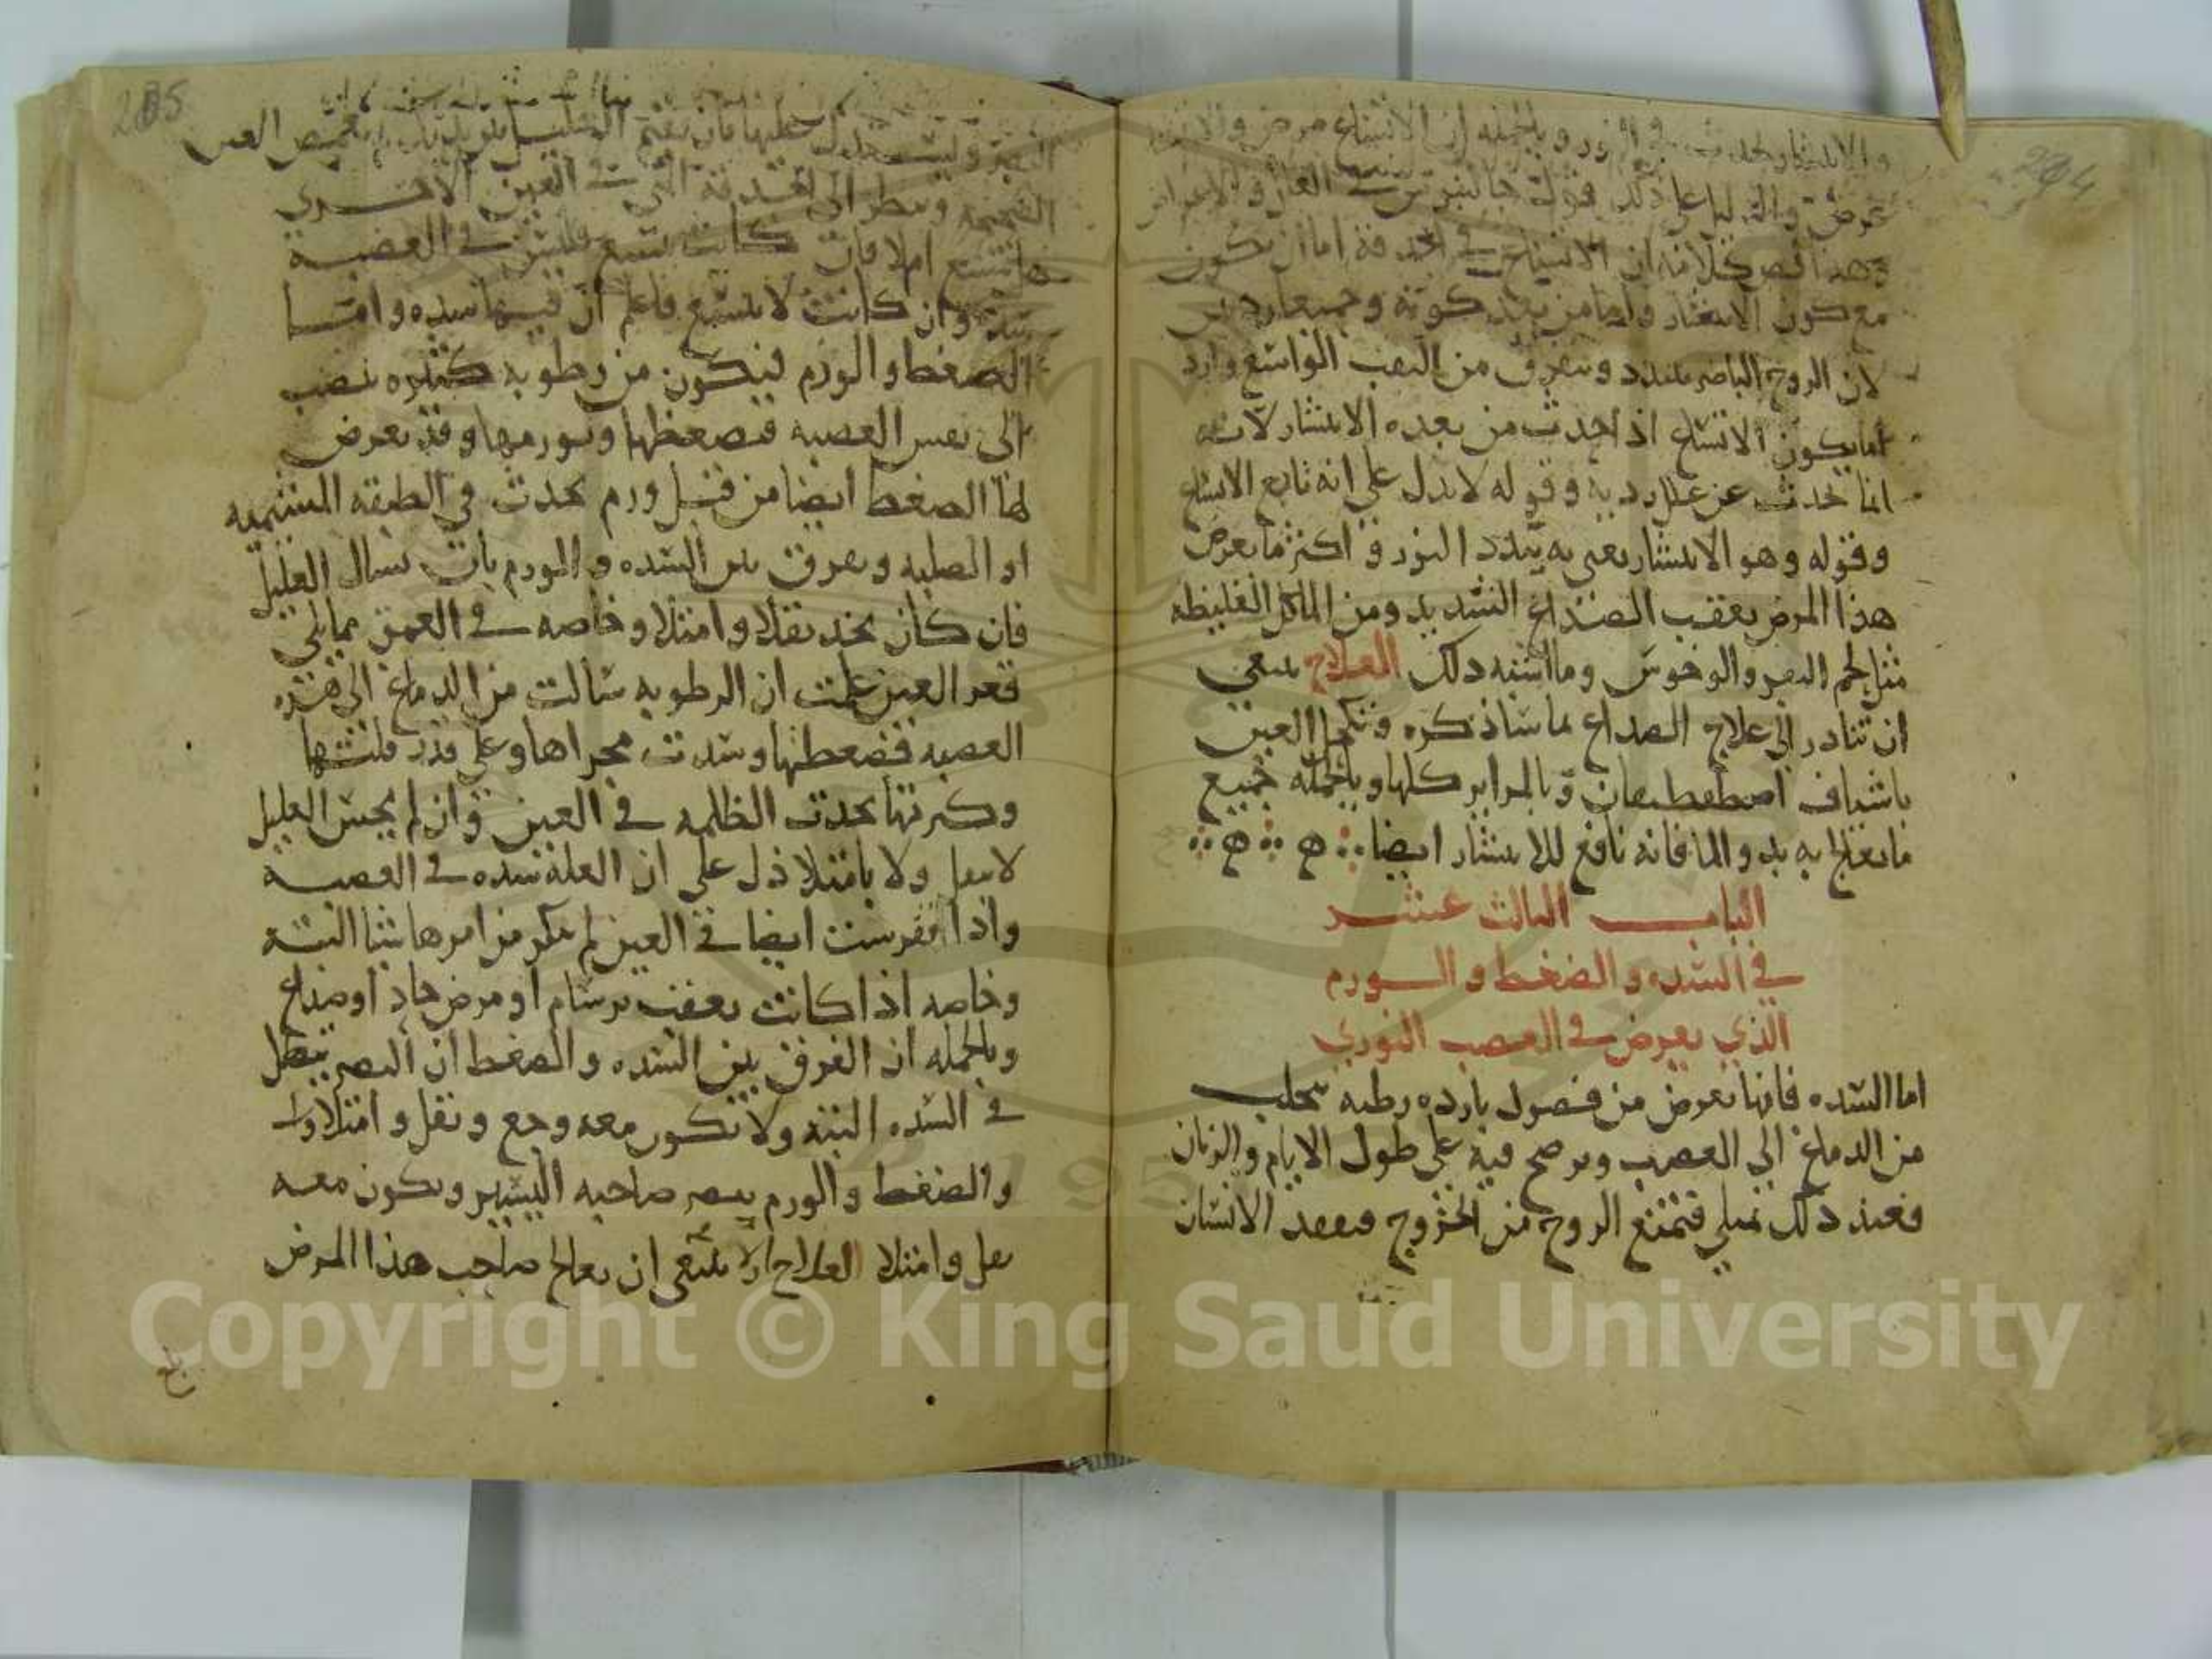 204
والانتشار يحدث في النور وبالجمله ان الاتساع مرض والانتشار
عرض والدليل على ذلك قول جالينوس في العلل والاعراض
وهذا نص كلامه ان الاتساع في الحدقة اما ان يكون
مع كون الانتشار واما من بعد كونه وجميعا ردئين
لان الروح الباصر يتبدد ويتفرق من الثقب الواسع واردا
ما يكون الاتساع اذا حدث من بعده الانتشار لانه
انما يحدث عن علل رديه وقوله لا يدل على انه تابع الاتساع
وقوله وهو الانتشار يعني به تبدد النور واكثر ما يعرض
هذا المرض بعقب الصداع الشديد ومن الماكل الغليظه
مثل لحم البقر والوحوش وما اشبه ذلك العلاج ينبغي
ان تبادر الى علاج الصداع بما ساذكره وتكحل العين
باشياف اصطفطيقان وبالمراير كلها وبالجمله جميع
ما يعالج به بدو الما فانه نافع للانتشار ايضا ه ه
الباب الثالث عشر
في السده والضغط والورم
الذي يعرض في العصب النوري
اما السده فانها تعرض من فضول بارده رطبه تتحلب
من الدماغ الى العصب وترسخ فيه على طول الايام والزمان
فعند ذلك تمتلي فتمنع الروح من الخروج فيفقد الانسان
205
البصر ويستدل عليها بان تقيم العليل بين يديك وتغمض العين
الصحيحه وتنظر الى الحدقة التي في العين الاخري
هل تتسع ام لا فان كانت تتسع فليس في العصبه
سدة وان كانت لا تتسع فاعلم ان فيها سده واما
الضغط والورم فيكون من رطوبه كثيره تنصب
الى نفس العصبه فتضغطها وتورمها وقد يعرض
لها الضغط ايضا من قبل ورم يحدث في الطبقه المشيميه
او الصلبه وتفرق بين السده والورم بان تسال العليل
فان كان يجد ثقلا وامتلا وخاصه في العمق مما يلي
قعر العين علمت ان الرطوبه سالت من الدماغ الى هذه
العصبه فضغطتها وسدت مجراها وعلى قدر قلتها
وكثرتها تحدث الظلمه في العين وان لم يحس العليل
لا بثقل ولا بامتلا دل على ان العلة سده في العصبه
واذا تفرست ايضا في العين لم تنكر من امرها شيا البتة
وخاصه اذا كانت بعقب برسام او مرض حاد او صداع
وبالجمله ان الفرق بين السده والضغط ان البصر يبطل
في السده البتة ولا يكون معه وجع وثقل وامتلا
والضغط والورم يبصر صاحبه اليسير ويكون معه
ثقل وامتلا العلاج ينبغي ان يعالج صاحب هذا المرض
Copyright © King Saud University